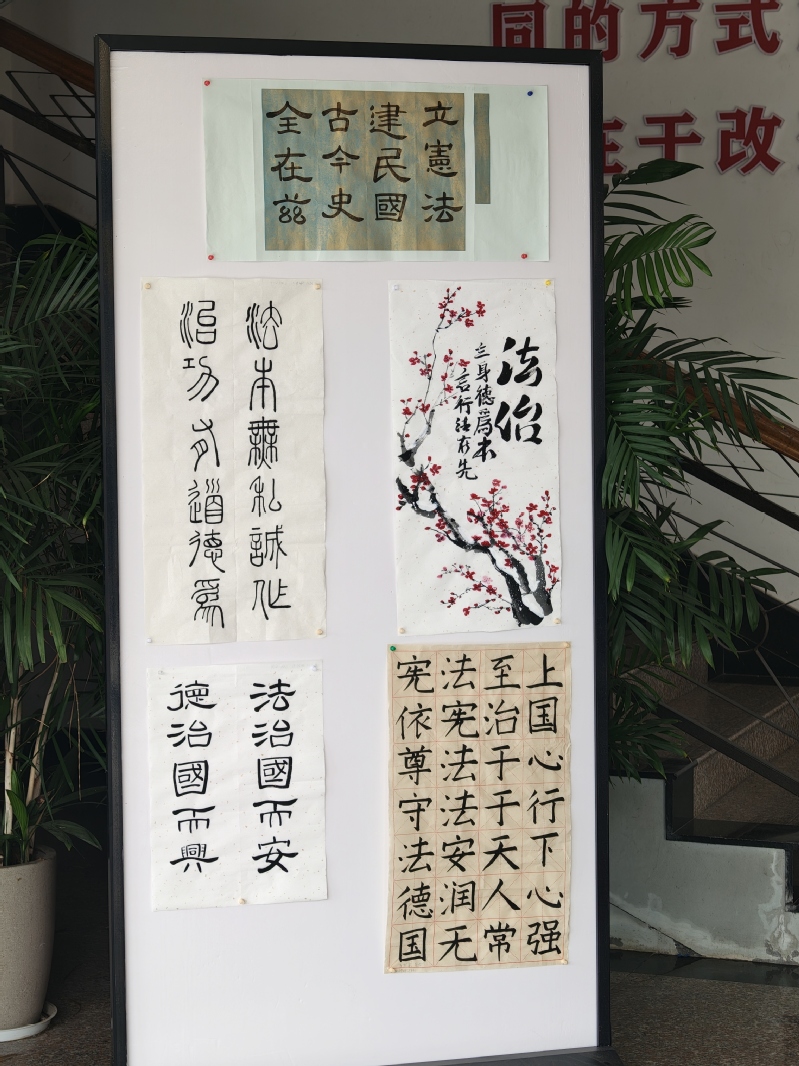 同的方式
于改
立憲法
建民國
古今史
全在茲
法本無私誠作
治功有道德為
法治
立身德爲本
言行法在先
法治國而安
德治國而興
宪法至上
依宪治国
尊法于心
守法于行
法安天下
德润人心
国无常强